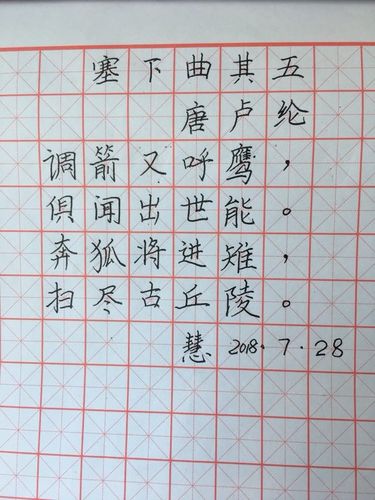 塞下曲其五
唐卢纶
调箭又呼鹰，
俱闻出世能。
奔狐将进雉，
扫尽古丘陵。
慧 2018.7.28